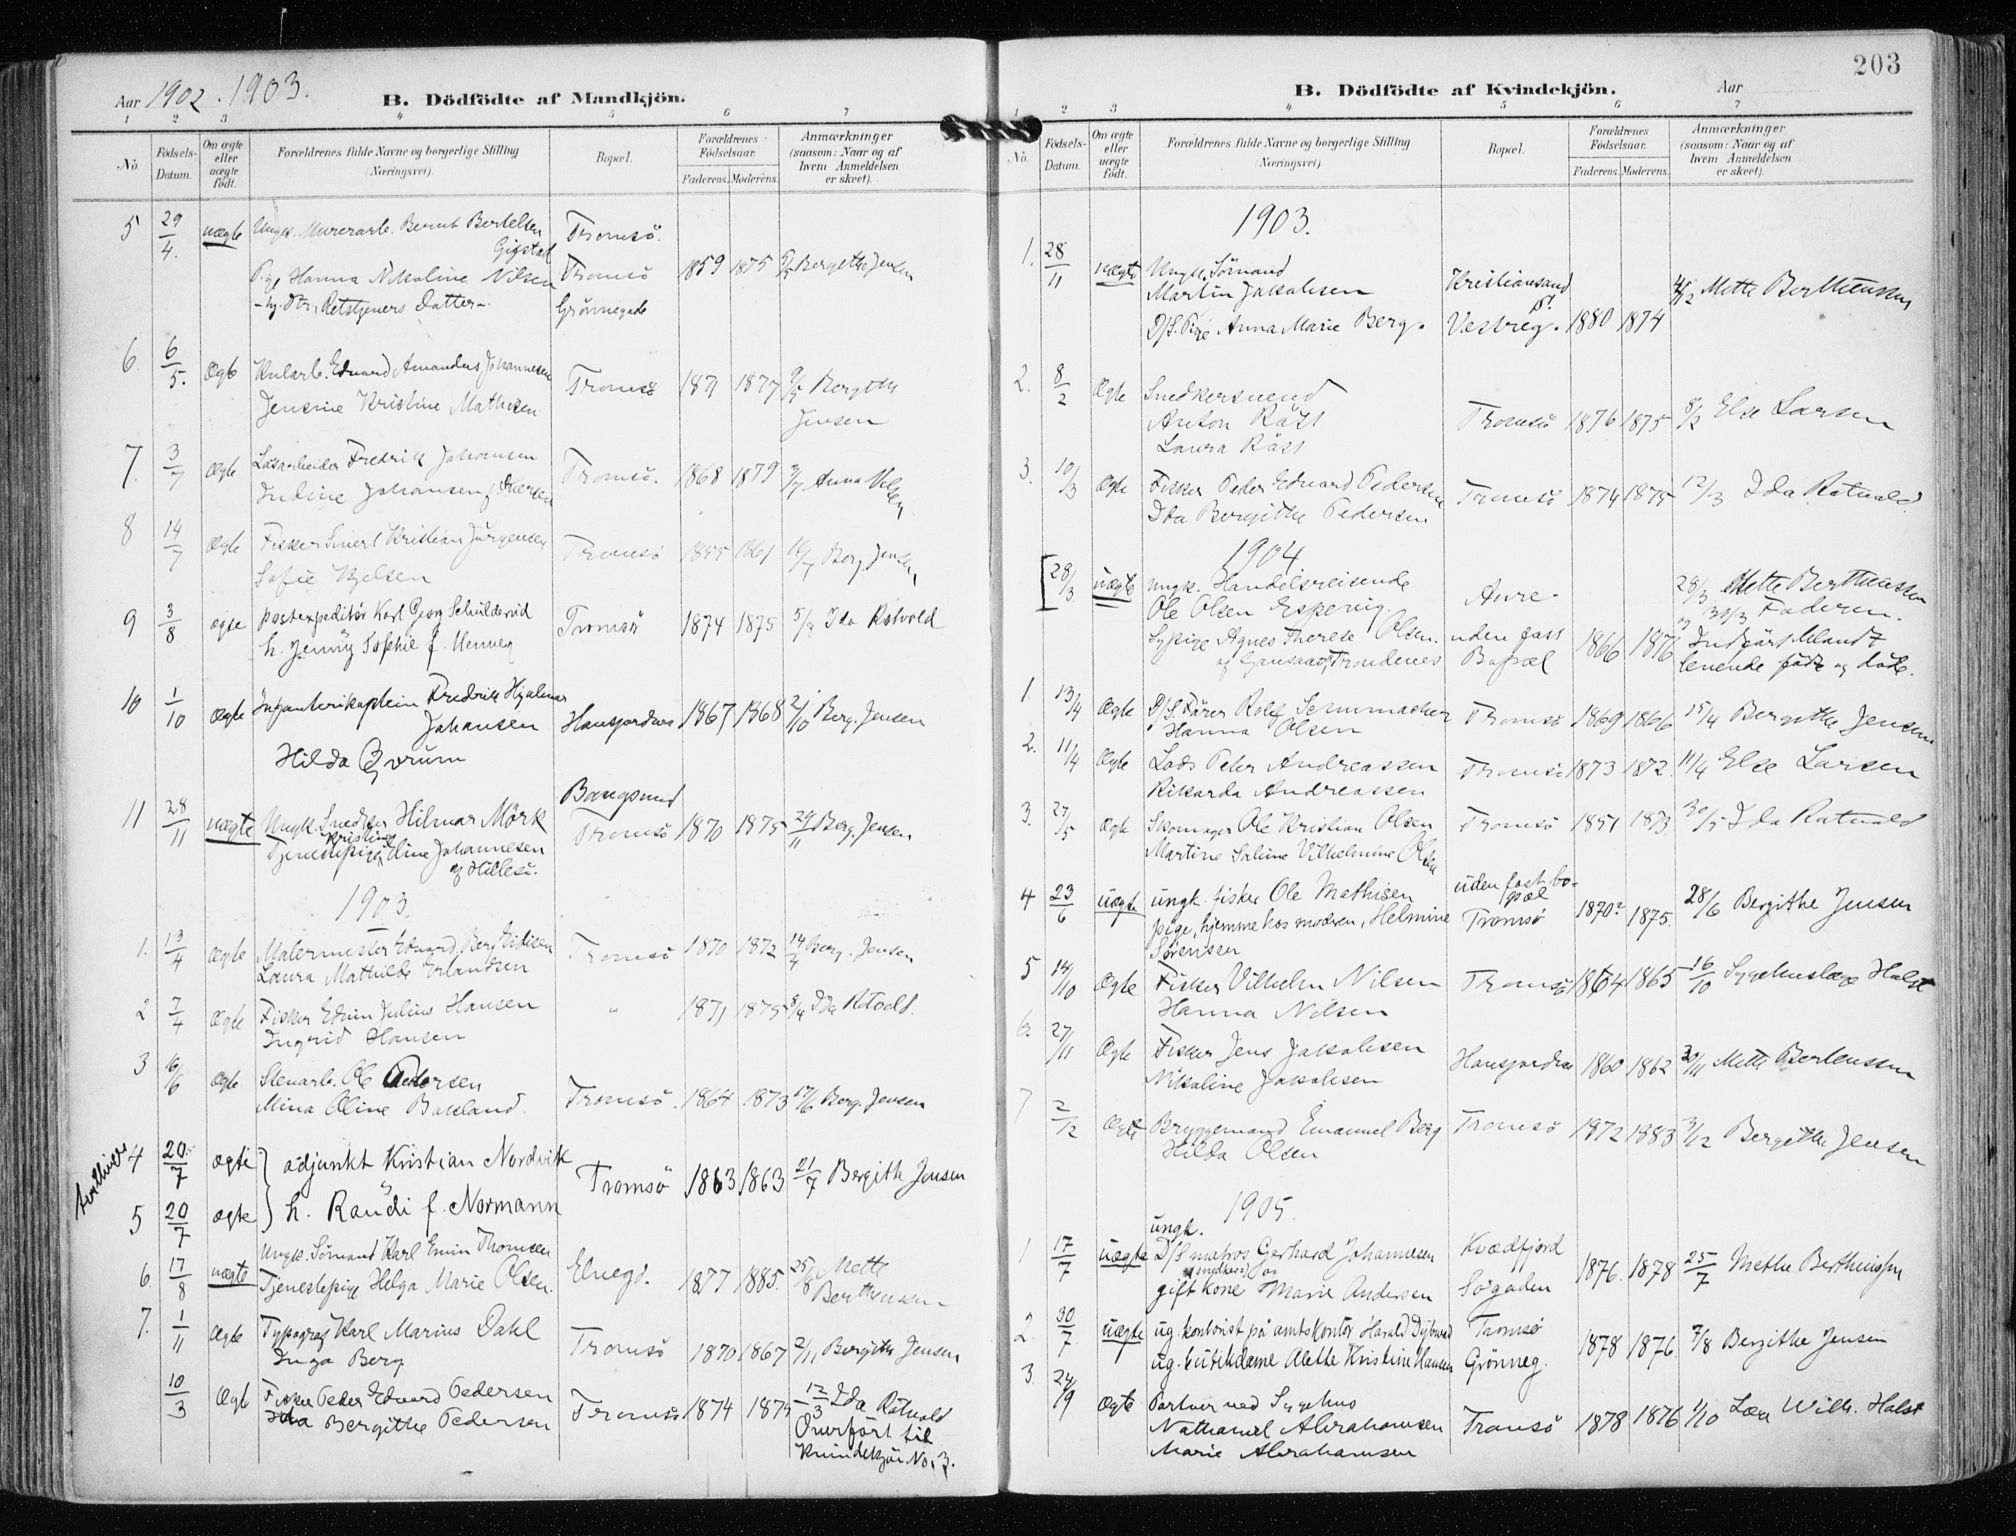 203
Aar 1902. 1903.
B. Dödfödte af Mandkjön.
1 2 3 4 5 6 7
No.
Födsels-Datum.
Om ægte eller uægte födt.
Forældrenes fulde Navne og borgerlige Stilling (Næringsvei).
Bopæl.
Forældrenes Födselsaar.
Faderens. Moderens.
Anmærkninger (saasom: Naar og af hvem Anmeldelsen er skeet).
5 29/4. uægte Ungk. Murerarb. Bernt Bertelsen Tromsö.
Pige Hanna Nikoline Nilsen Tromsö 1859 1875 Bergethe Jensen
Retstjeners Datter Grönnegade
6. 6/5. Ægte Kularb. Edvard Amandus Johannesen Tromsö 1871 1877 Bergethe
Jensine Kristine Mathisen Jensen
7. 3/7 Ægte Fredrik Johansen Tromsö. 1868 1879 Anna
Indine Johansen f. Iversen
8 14/7 Ægte Fisker Kristian Jürgensen Tromsö 1855 1861 Berg. Jensen
Sofie
9 3/8 ægte postexpeditör Karl Georg Schulderud Tromsö 1874 1875 Ida Rotvold
h. Jenny Sophie f.
10 1/10 Ægte Infanterikaptein Fredrik Hjalmar
Johansen Hansjordnes 1867 1868 2/10 Berg. Jensen
Hilda Gjorum
11 28/11 uægte Ungk. Snedker Hilmar Mörk Bangsund
Tjenestepige Kristine Eline Johannesen Tromsö 1870 1875 29/11 Berg. Jensen
af Hillesö.
1903.
1. 13/4 Ægte Malermester Edvard Berg Eidisen Tromsö 1870 1872 14/4 Berg. Jensen
Laura Mathilde Erlandsen
2 7/4 Ægte Fisker Edvin Julius Hansen " 1871 1875 8/4 Ida Rotvold.
Ingrid Hansen
3 16/6 Ægte Stenarb. Ole Pedersen
Mina Oline Bakland. Tromsö. 1864 1873 17/6 Berg. Jensen
Tvillinger
4 20/7 ægte adjunkt Kristian Nordvik Tromsö 1863 1863 21/7 Bergithe Jensen
5 20/7 ægte h. Raudi f. Normann
Ungk. Sömand Karl Emin Thomsen
6. 17/8 uægte Tjenestepige Helga Marie Olsen. Elvegd. 1877 1885. 25/8 Mette Berthensen
7. 1/11 Ægte Typograf Karl Marius Dahl Tromsö 1870 1867 2/11 Bergithe Jensen
Inga Berg
10/3 Ægte Fisker Peder Edvard Pedersen Tromsö 1874 1875 12/3 Ida Rotvold
Ida Bergithe Pedersen
Overfört til
Kvindekjön No. 3.
B. Dödfödte af Kvindekjön.
Aar
1 2 3 4 5 6 7
No.
Födsels-Datum.
Om ægte eller uægte födt.
Forældrenes fulde Navne og borgerlige Stilling (Næringsvei).
Bopæl.
Forældrenes Födselsaar.
Faderens. Moderens.
Anmærkninger (saasom: Naar og af hvem Anmeldelsen er skeet).
1903.
1. 28/11 uægte Ungk. Sömand
Martin Jakobsen Kristiansund Mette Berthenssen
D/S. Pige Anna Marie Berg. Vestreg. 1880 1874
2. 8/2 Ægte Snedkersvend
Anton Räst Tromsö 1876 1875 8/2 Else Larsen
Laura Räst
3. 10/3 Ægte Fisker Peder Edvard Pedersen Tromsö 1874 1875 12/3 Ida Rotvold.
Ida Bergithe Pedersen
1904
28/3. uægte ungk. Handelsreisende 28/3 Mette Berthenssen
Ole Olsen Espenig. Aure. Faderen.
Sypige Agnes Therese Olsen. uden fast 1866 1876 Indfört blandt
af Gansaas, Trondenes Bopæl levende födte og döde.
1. 13/4 Ægte D/S. Förer Rolf Schumacher Tromsö 1869 1866 15/4 Bergithe Jensen.
Hanna Olsen
2. 11/4 Ægte Lods Peter Andreassen Tromsö 1873 1872. 11/4 Else Larsen
Rikarda Andreassen
3. 27/5 Ægte Skomager Ole Kristian Olsen Tromsö 1851 1873 30/5 Ida Rotvold
Martine Saline Vilhelmine Olsen
4 23/6 uægte ungk. fisker Ole Mathisen uden fast bopæl 1870? 1875. 28/6 Bergithe Jensen
pige, hjemme hos modren, Helmine Tromsö
Sörenssen
5 14/10 Ægte Fisker Vilhelm Nilsen Tromsö 1864 1865 16/10 Sygehuslæge Holst
Hanna Nilsen
6. 27/11 Ægte Fisker Jens Jakobsen Hansjordnes 1860 1862 30/11 Mette Bertenssen
Nikoline Jakobsen
7 2/12 Ægte Bryggemand Emanuel Berg Tromsö 1972 1883 3/12 Bergithe Jensen
Hilda Olsen
1905.
1 17/7 uægte ungk. D/S matros Gerhard Johannesen Kvædfjord 1876. 1878 25/7 Methe Berthenssen
gift kone Marie Andersen Sögaden
2. 30/7. uægte ug. kontorist på amtskontor Harald Tromsö 1878 1876. 7/8 Bergithe Jensen
ug. butikdame Alette Kristine Hansen Grönneg.
3. 24/9 ægte Portner ved Sygehus
Nathanael Abrahamsen Tromsö 1878 1876 1/10 Læge Wilh. Holst
Marie Abrahamsen